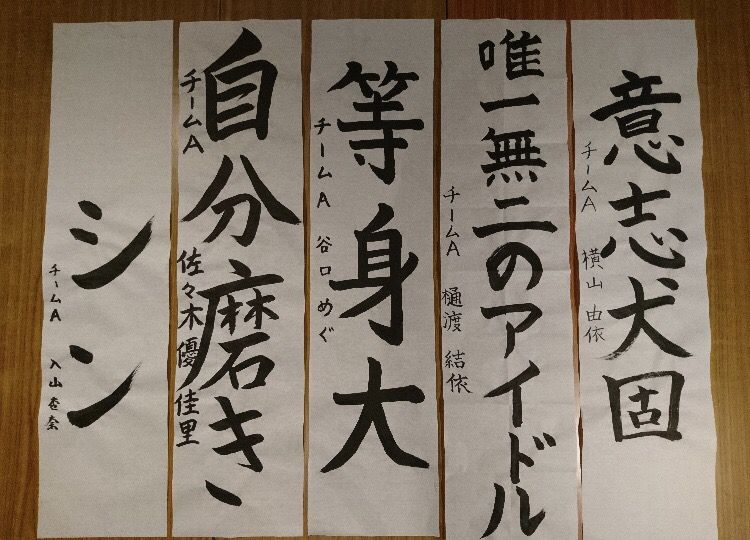 意志犬固
チームA 横山 由依
唯一無二のアイドル
チームA 樋渡 結依
等身大
チームA 谷口めぐ
自分磨き
チームA 佐々木優佳里
シン
チームA 入山杏奈